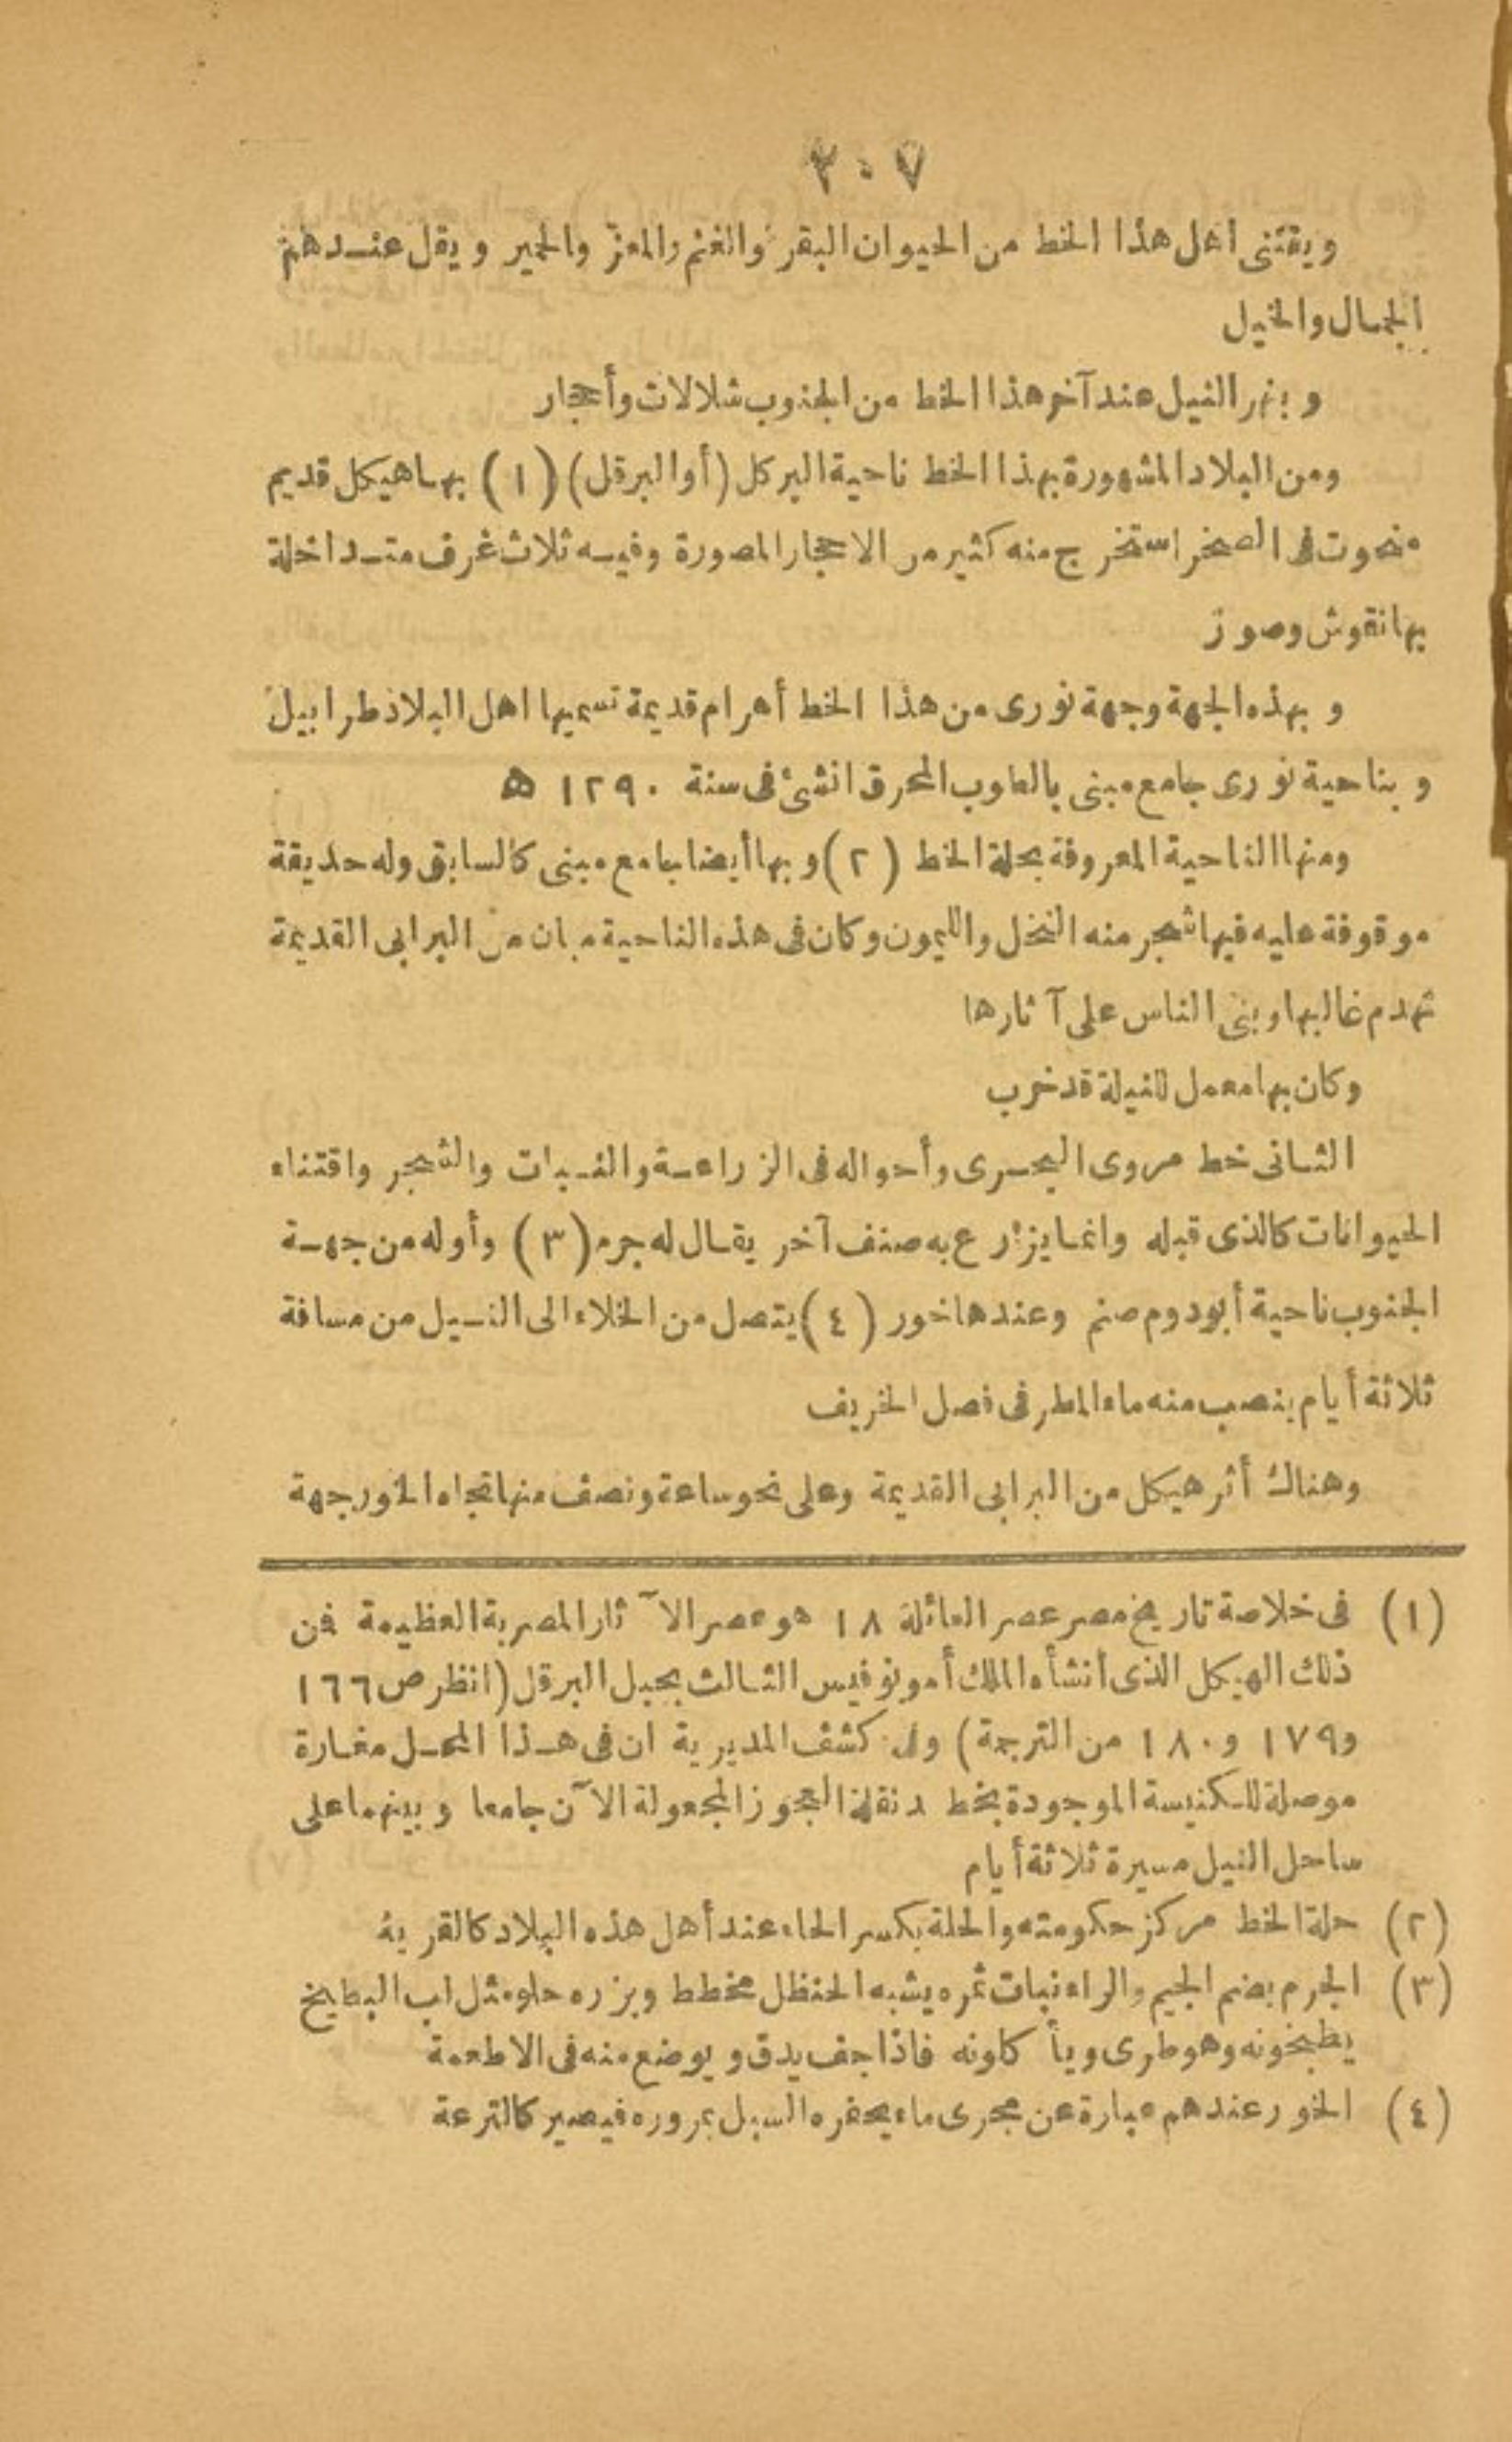 ٢٠٧
ويقتنى أهل هذا الخط من الحيوان البقر والغنم والمعز والحمير ويقل عندهم
الجمال والخيل
وبنهر النيل عند آخر هذا الخط من الجنوب شلالات وأحجار
ومن البلاد المشهورة بهذا الخط ناحية البركل (أو البرقل) (١) بها هيكل قديم
منحوت فى الصخر استخرج منه كثير من الاحجار المصورة وفيه ثلاث غرف متداخلة
بها نقوش وصور
وبهذه الجهة وجهة نورى من هذا الخط أهرام قديمة تسميها اهل البلاد طرابيل
وبناحية نورى جامع مبنى بالطوب المحرق انشئ فى سنة ١٢٩٠ ه
ومنها الناحية المعروفة بحلة الخط (٢) وبها أيضا جامع مبنى كالسابق وله حديقة
موقوفة عليه فيها شجر منه النخل والليمون وكان فى هذه الناحية مبان من البرابى القديمة
تهدم غالبها وبنى الناس على آثارها
وكان بها معمل للنيلة قد خرب
الثانى خط مروى البحرى وأحواله فى الزراعة والنبات والشجر واقتناء
الحيوانات كالذى قبله وانما يزرع به صنف آخر يقال له جرم (٣) وأوله من جهة
الجنوب ناحية أبودوم صنم وعندها خور (٤) يتصل من الخلاء الى النيل من مسافة
ثلاثة أيام ينصب منه ماء المطر فى فصل الخريف
وهناك أثر هيكل من البرابى القديمة وعلى نحو ساعة ونصف منها تجاه الخور جهة
(١) فى خلاصة تاريخ مصر عصر العائلة ١٨ هو عصر الآثار المصرية العظيمة فمن
ذلك الهيكل الذى أنشأه الملك أمونوفيس الثالث بجبل البرقل (انظر ص ١٦٦
و١٧٩ و١٨٠ من الترجمة) وفى كشف المديرية ان فى هذا المحل مغارة
موصلة للكنيسة الموجودة بخط دنقلة العجوز المجعولة الآن جامعا وبينهما على
ساحل النيل مسيرة ثلاثة أيام
(٢) حلة الخط مركز حكومته والحلة بكسر الحاء عند أهل هذه البلاد كالقرية
(٣) الجرم بضم الجيم والراء نبات ثمره يشبه الحنظل مخطط وبزره حلو مثل لب البطيخ
يطبخونه وهو طرى ويأكلونه فاذا جف يدق ويوضع منه فى الاطعمة
(٤) الخور عندهم عبارة عن مجرى ماء يحفره السيل بمروره فيصير كالترعة